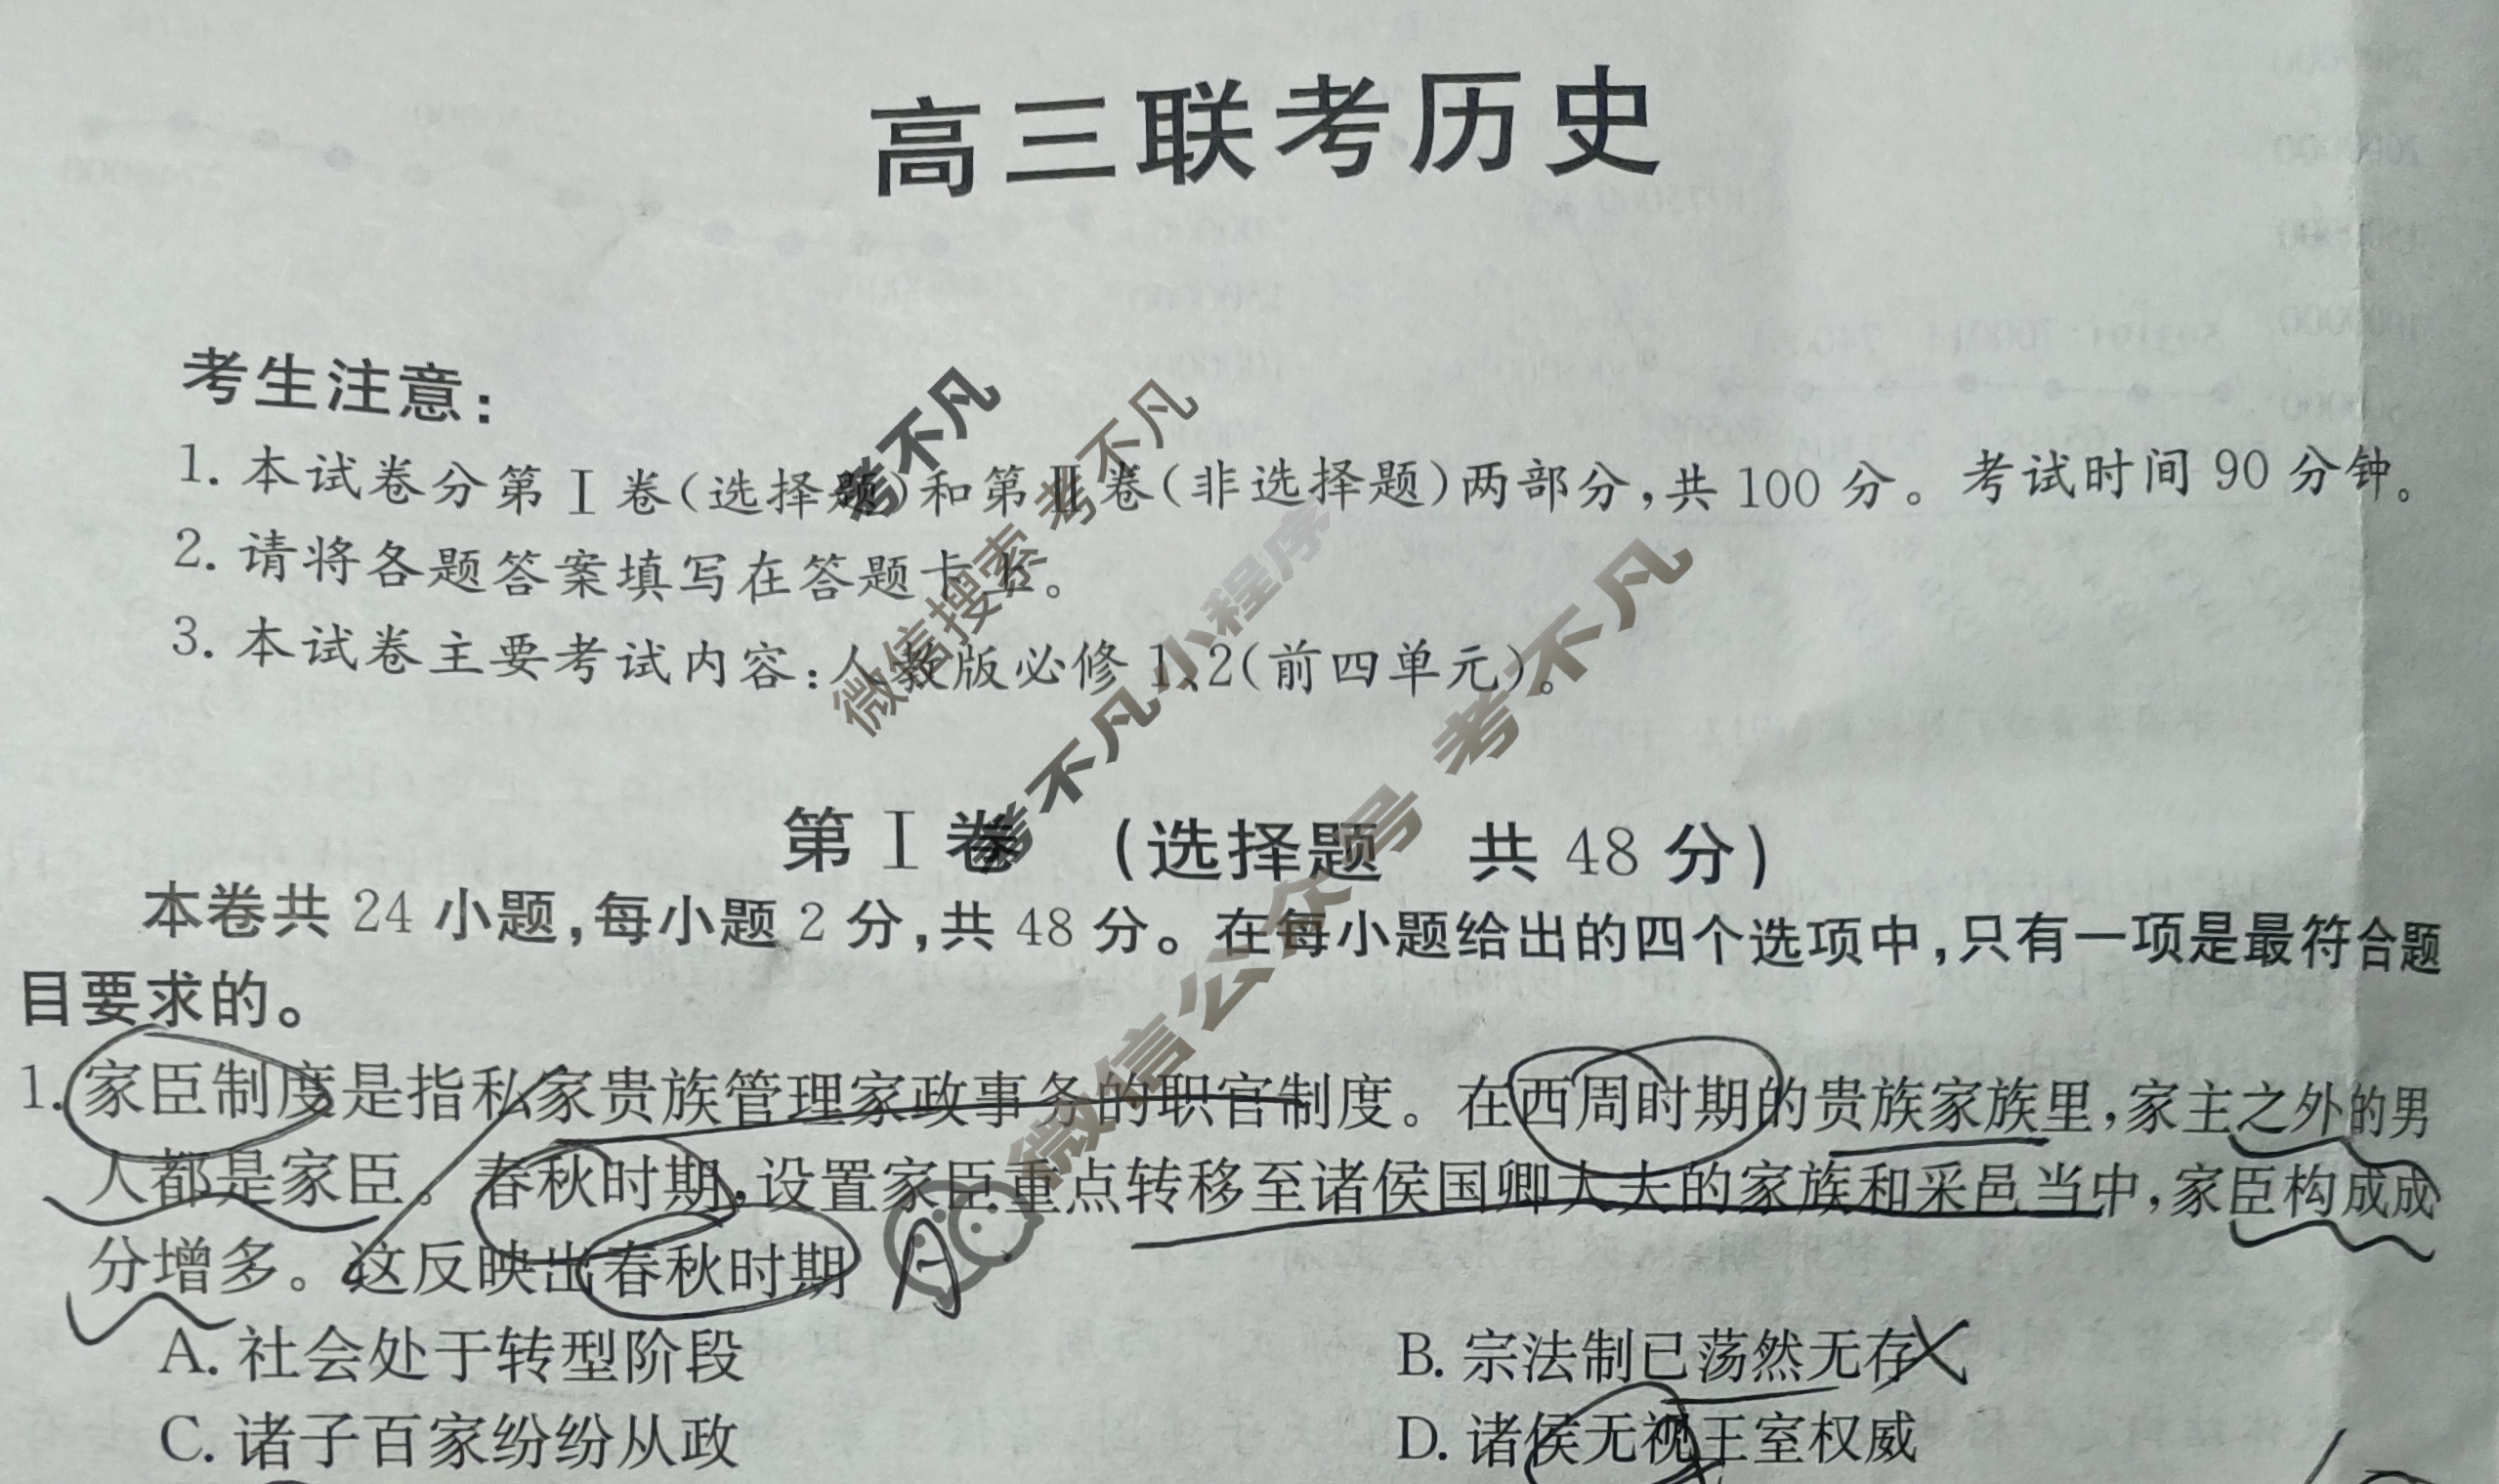 高三联考历史
考生注意：
1. 本试卷分第Ⅰ卷(选择题)和第Ⅱ卷(非选择题)两部分，共100分。考试时间90分钟。
2. 请将各题答案填写在答题卡上。
3. 本试卷主要考试内容：人教版必修1、2(前四单元)。
考不凡
微信搜索 考不凡
考不凡小程序
微信公众号 考不凡
第Ⅰ卷 (选择题 共48分)
本卷共24小题，每小题2分，共48分。在每小题给出的四个选项中，只有一项是最符合题
目要求的。
1. 家臣制度是指私家贵族管理家政事务的职官制度。在西周时期的贵族家族里，家主之外的男
人都是家臣。春秋时期，设置家臣重点转移至诸侯国卿大夫的家族和采邑当中，家臣构成成
分增多。这反映出春秋时期 A
A. 社会处于转型阶段
B. 宗法制已荡然无存
C. 诸子百家纷纷从政
D. 诸侯无视王室权威